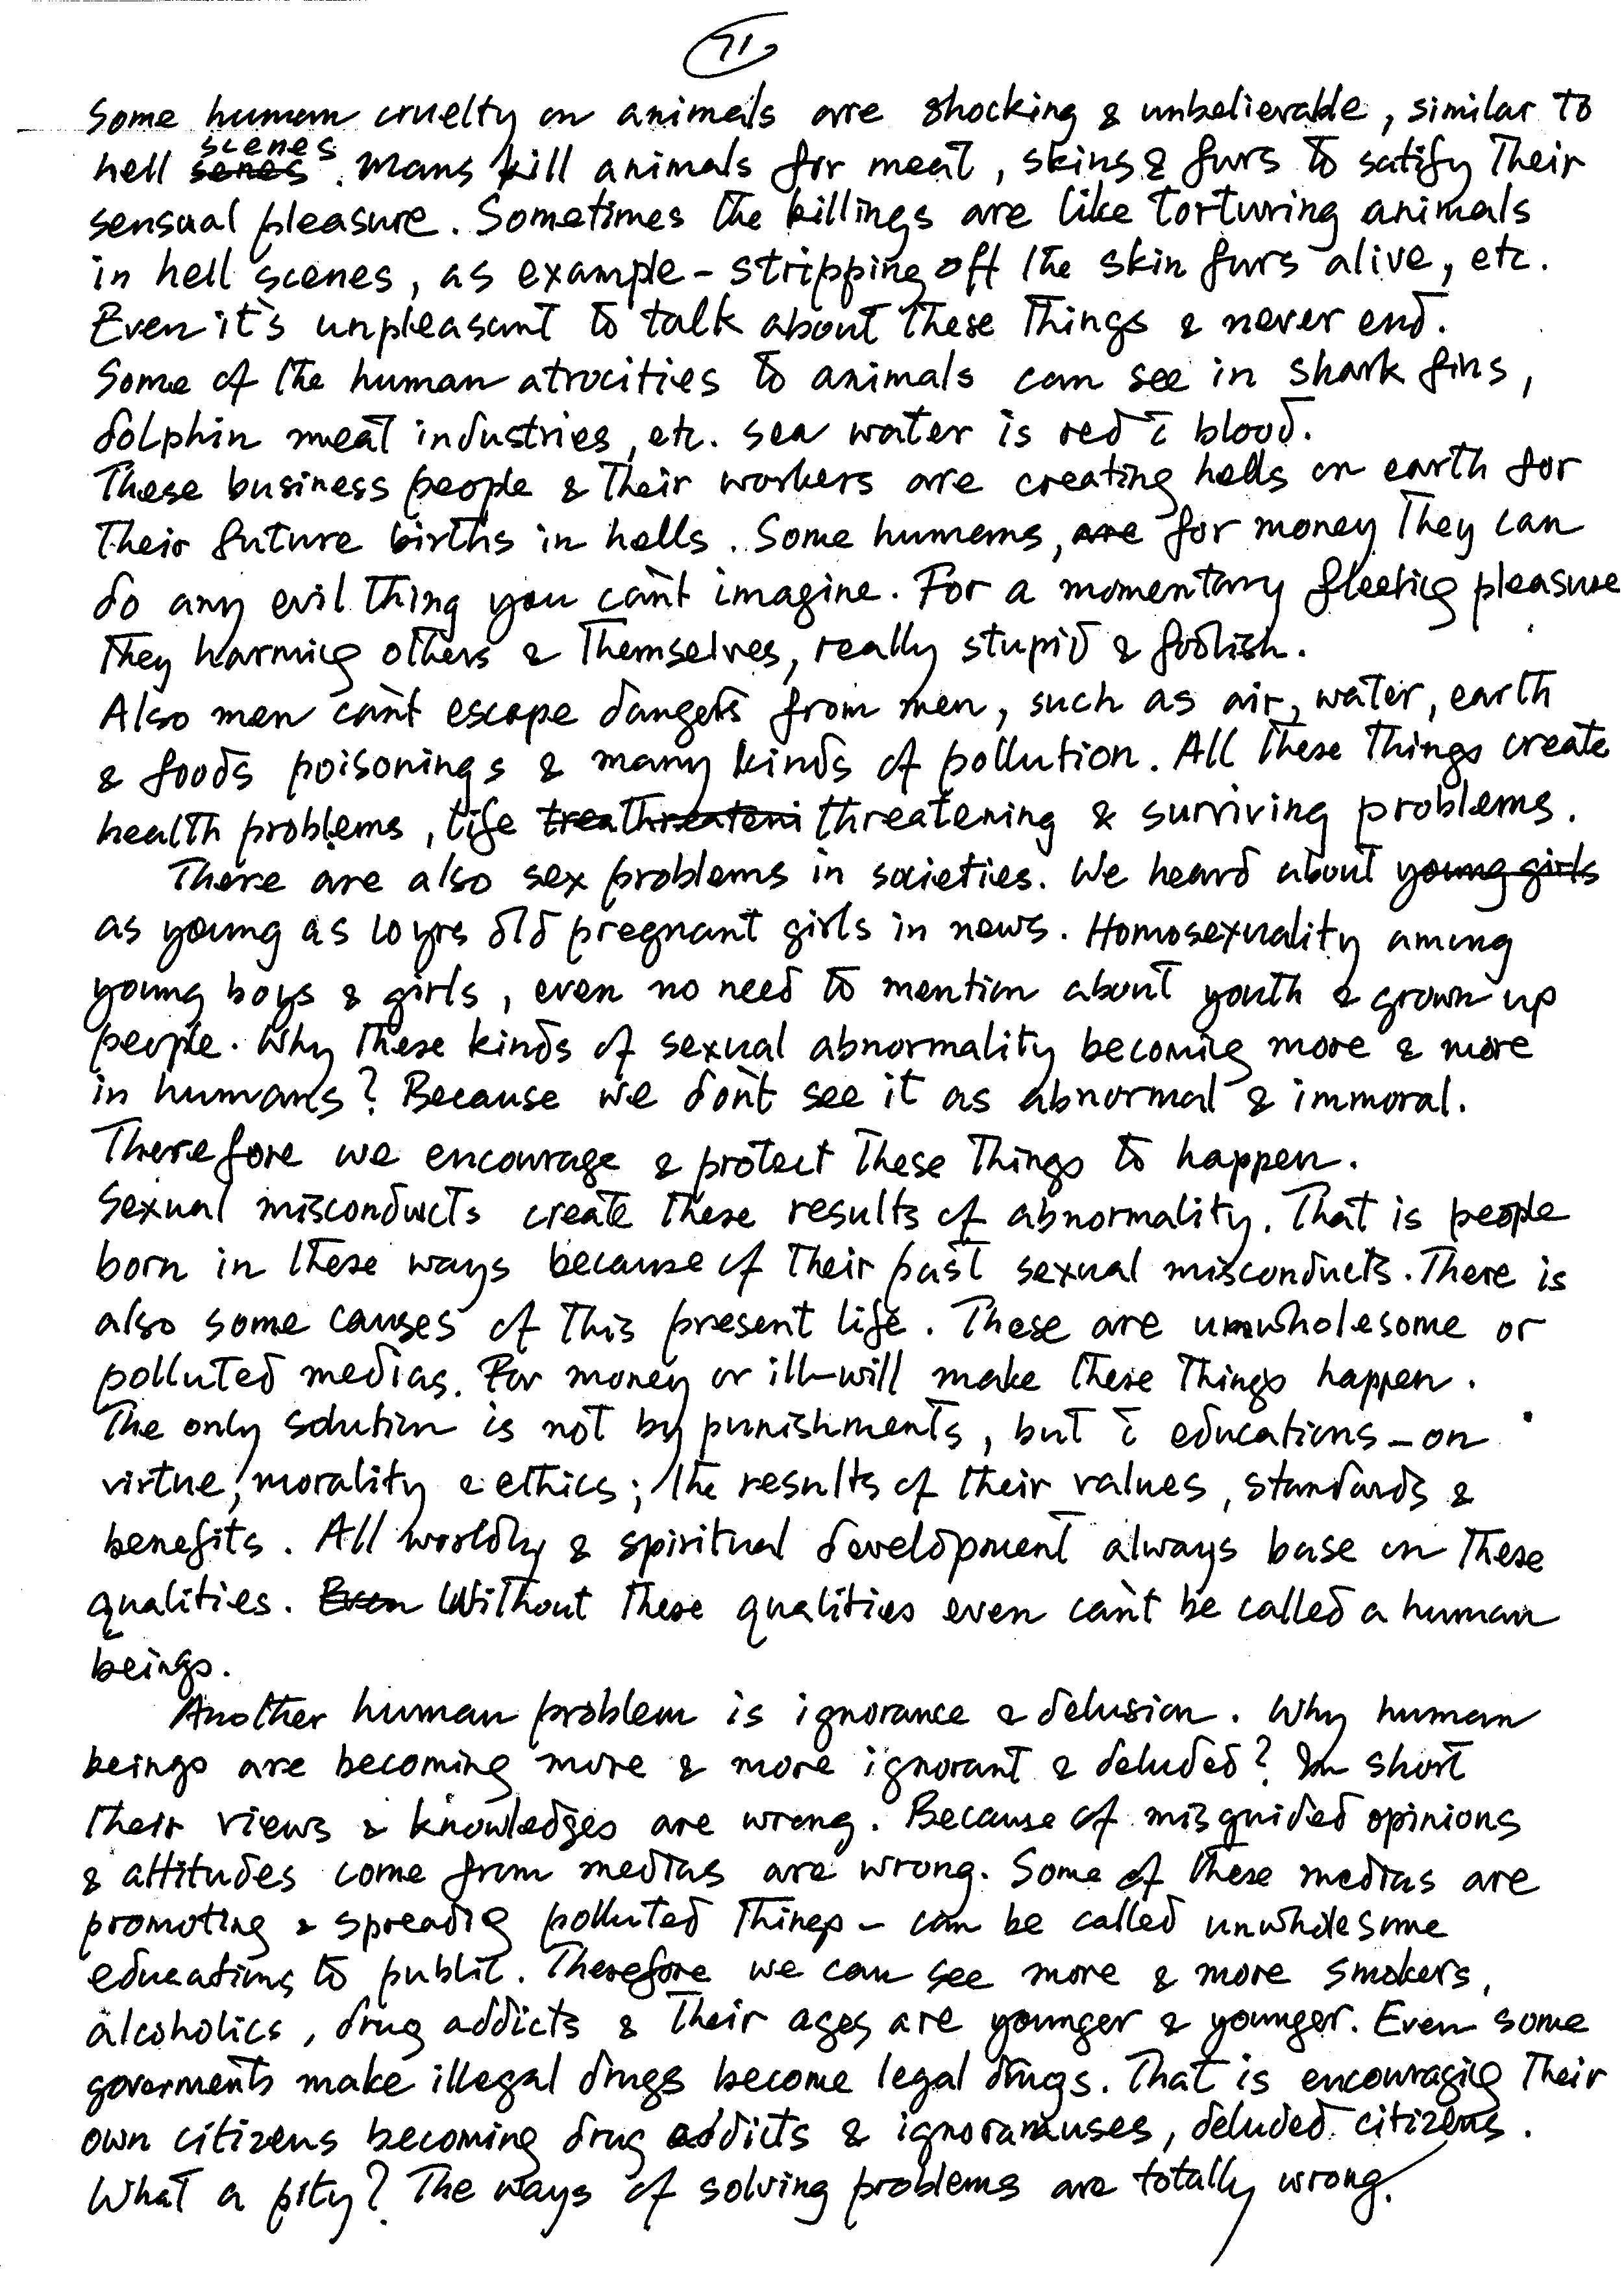 71
Some human cruelty on animals are shocking & unbelievable, similar to
scenes
hell senes. Mans kill animals for meat, skins & furs to satify their
sensual pleasure. Sometimes the killings are like torturing animals
in hell scenes, as example - stripping off the skin furs alive, etc.
Even it's unpleasant to talk about these things & never end.
Some of the human atrocities to animals can see in shark fins,
dolphin meat industries, etc. sea water is red c̄ blood.
These business people & their workers are creating hells on earth for
their future births in hells. Some humans, are for money they can
do any evil thing you can't imagine. For a momentary fleeting pleasure
they harming others & themselves, really stupid & foolish.
Also men can't escape dangers from men, such as air, water, earth
& foods poisonings & many kinds of pollution. All these things create
health problems, life treathreateni threatening & surviving problems.
There are also sex problems in societies. We heard about young girls
as young as 10 yrs old pregnant girls in news. Homosexuality among
young boys & girls, even no need to mention about youth & grown up
people. Why these kinds of sexual abnormality becoming more & more
in humans? Because we don't see it as abnormal & immoral.
Therefore we encourage & protect these things to happen.
Sexual misconducts create these results of abnormality. That is people
born in these ways because of their past sexual misconducts. There is
also some causes of this present life. These are unwholesome or
polluted medias. For money or ill-will make these things happen.
The only solution is not by punishments, but c̄ educations - on
virtue, morality & ethics; the results of their values, standards &
benefits. All worldly & spiritual development always base on these
qualities. Even Without these qualities even can't be called a human
beings.
Another human problem is ignorance & delusion. Why human
beings are becoming more & more ignorant & deluded? In short
their views & knowledges are wrong. Because of misguided opinions
& attitudes come from medias are wrong. Some of these medias are
promoting & spreading polluted things - can be called unwholesome
educations to public. Therefore we can see more & more smokers,
alcoholics, drug addicts & their ages are younger & younger. Even some
goverments make illegal drugs become legal drugs. That is encouraging their
own citizens becoming drug addicts & ignoramuses, deluded citizens.
What a pity? The ways of solving problems are totally wrong.